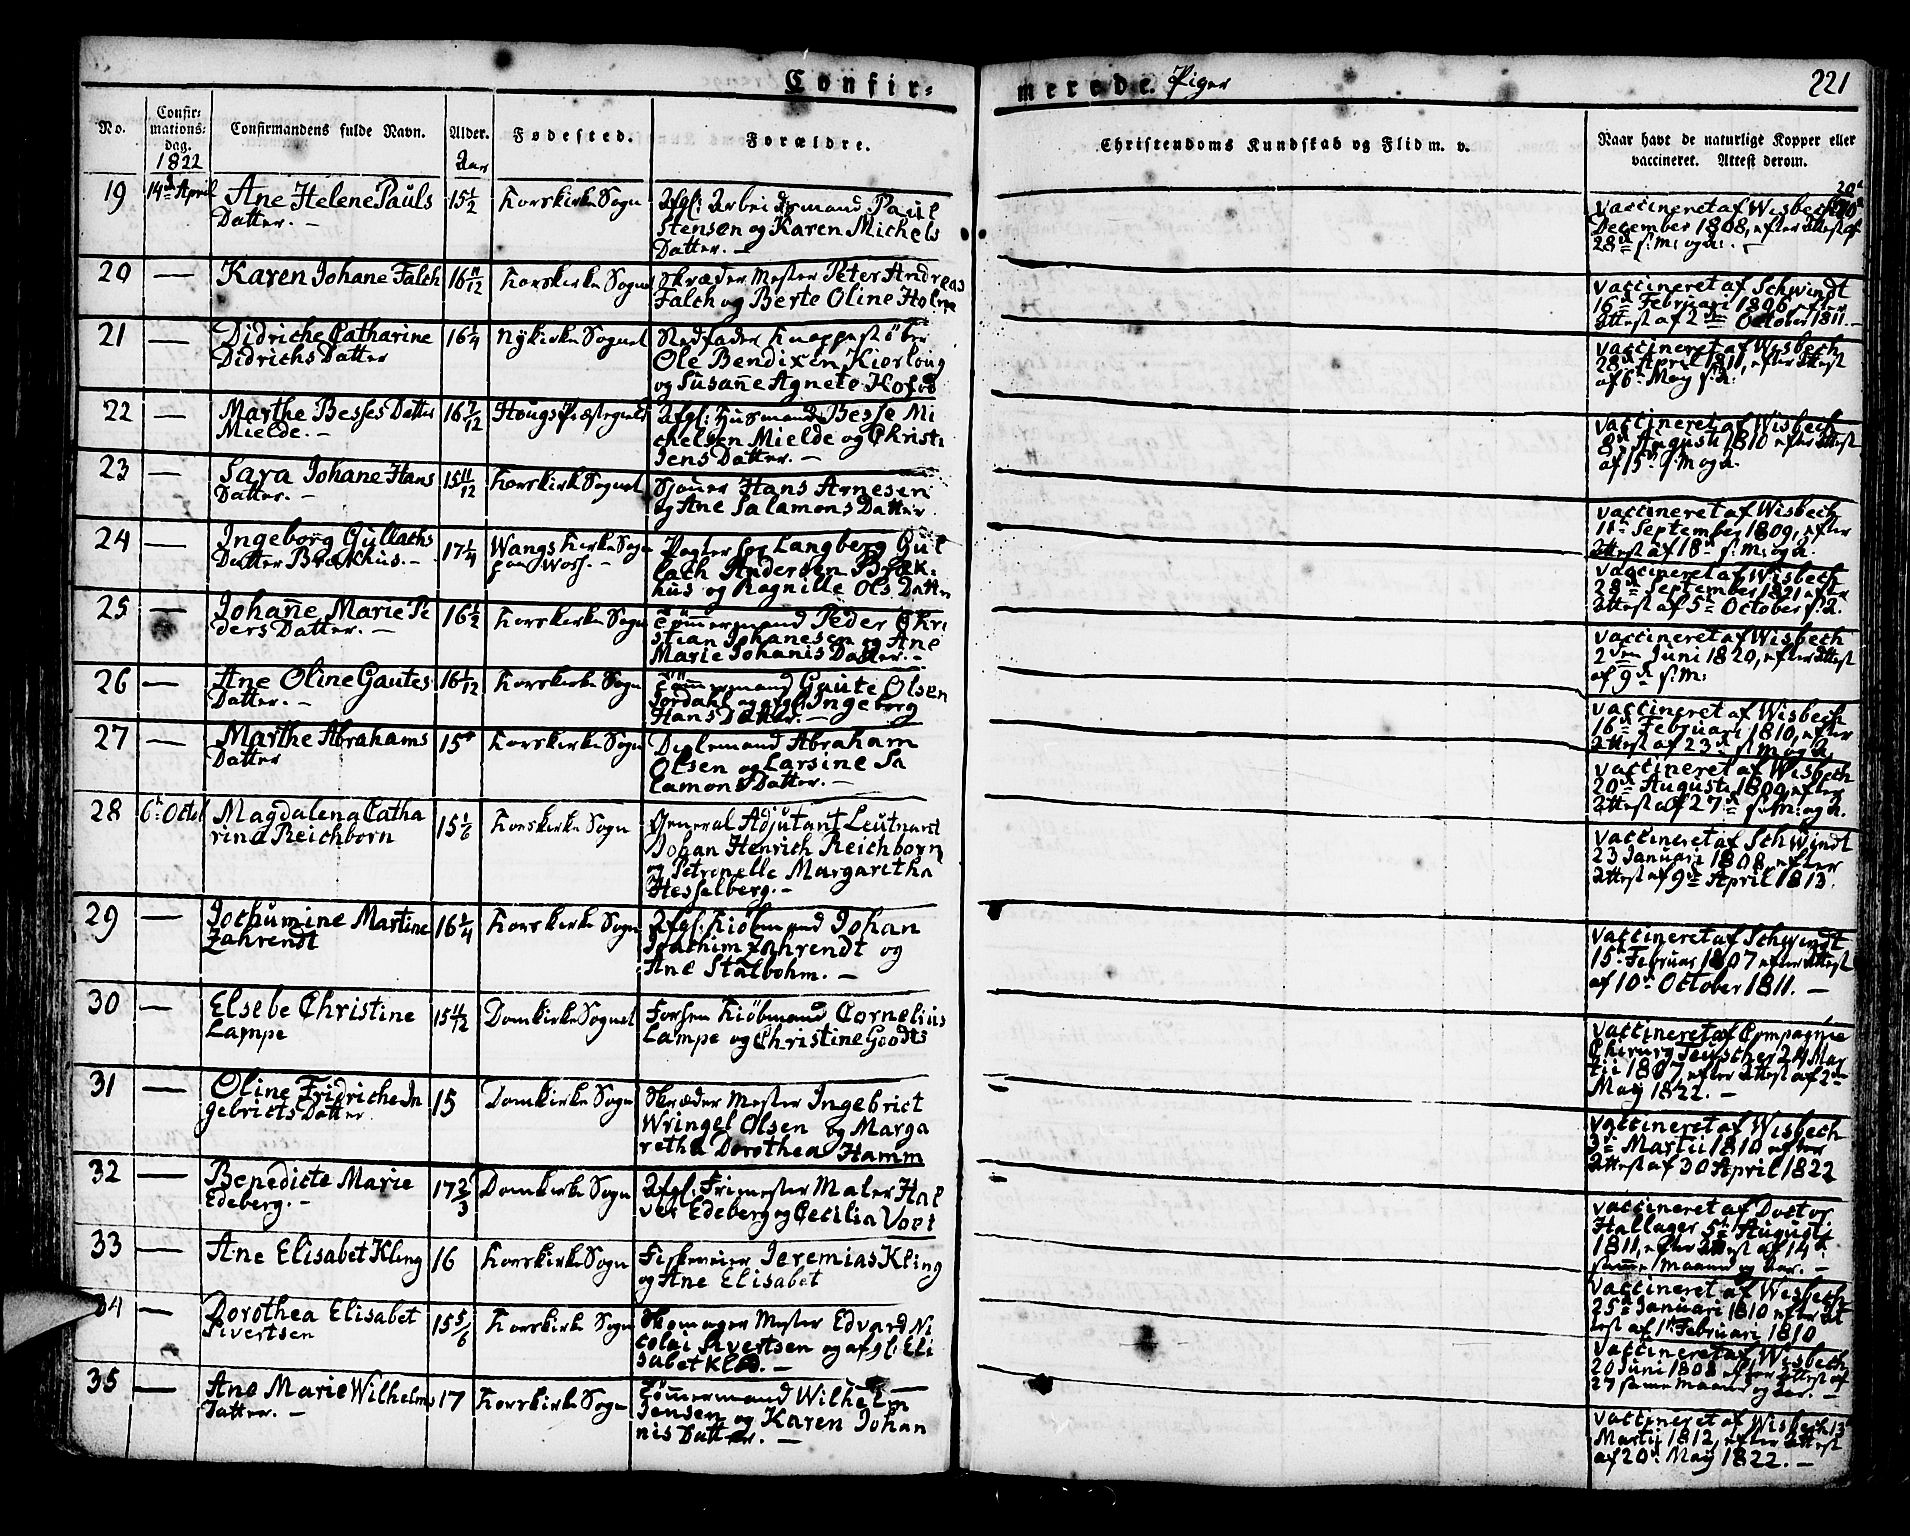 Confir-
merede. Piger
221
No.
Confir-
mations-
dag.
1822
Confirmandens fulde Navn.
Alder.
Aar
Fødested.
Forældre.
Christendoms Kundskab og Flid m. v.
Naar havt de naturlige Kopper eller
vaccineret. Attest derom.
19 14d April Ane Helene Pauls 15½ Korskirke Sogn Afgl: Arbeidsmand Paul
Datter. — Stensen og Karen Michels
Datter. —
vaccineret af Wisbech 20d
December 1808, efter Attest af
28d s: M: og A: —
20 — Karen Johane Falch 16 11/12 Korskirke Sogn Skræder Mester Peter Andreas
Falch og Berte Oline Holm
vaccineret af Schwindt
16d Februari 1806 efter
Attest af 2den October 1811. —
21 — Didriche Catharine 16¼ Nykirke Sognet
Didrichs Datter Ole Bendixen Kiorloug
og Susanne Agnete Hofod
vaccineret af Wisbech
28d April 1811, efter Attest
af 6d May s: A:
22 — Marthe Besses Datter 16 7/12 Hougs Præstegield Afgl: Husmand Besse Mi
Mielde. — chelsen Mielde og Christi
Jens Datter. —
vaccineret af Wisbech
8d Augusti 1810 efter Attest
af 15d s: M og A:
23 — Sara Johane Hans 15 11/12 Korskirke Sognet Sjouer Hans Arnesen
Datter. — og Ane Salamons Datter
vaccineret af Wisbech
11d September 1809, efter
Attest af 18d s: M: og A:
24 — Ingeborg Gullachs 17¼ Wangs Kirke Sogn
Datter Brækhus. — paa Woss. — lach Andersen Bræk-
hus og Ragnille Ols Datter
vaccineret af Wisbech
28d September 1821 efter
Attest af 5d October s: A:
25 — Johanne Marie Pe 16½ Korskirke Sogn Tømmermand Peder Chri
ders Datter. — stian Johanesen og Ane
Marie Johanis Datter. —
vaccineret af Wisbech
2den Juni 1820, efter Attest
af 9d s: M:
26 — Ane Oline Gautes 16 1/12 Korskirke Sogn Tømmermand Gaute Olsen
Datter. — Jordahl og afgl: Ingeborg
Hans Datter. —
vaccineret af Wisbech
16d Februari 1810, efter
Attest af 23d s: M og A.
27 — Marthe Abrahams 15 Korskirke Sogn Abraham
Datter Olsen og Larsine Sa
lamons Datter. —
vaccineret af Wisbech
20d Augusti 1809 efter
Attest af 27d s: M: og A.
28 6d Octob Magdalena Catha 15 1/6 Korskirke Sogn General Adjutant Leutnant
rina Reichborn Johan Henrich Reichborn
og Petronelle Margaretha
Hesselberg. —
vaccineret af Schwindt
23 Januari 1808 efter
Attest af 9d April 1813.
29 — Jochumine Martine 16¼ Korskirke Sogn Afgl: Kiøbmand Johan
Zahrendt Joachim Zahrendt og
Ane Stalbohm. —
vaccineret af Schwindt
15d Februar 1807 efter Attest
af 10d October 1811. —
30 — Elsebe Christine 15 11/12 Domkirke Sognet Forhen Kiøbmand Cornelius
Lampe Lampe og Christine Goodts
vaccineret af Compagnie
Chirurg Teuscher 24 Mar
tii 1807 efter Attest af 2den
May 1822. —
31 — Oline Fridriche In 15 Domkirke Sogn Skræder Mester Ingebrict
gebricts Datter Wringel Olsen og Marga
retha Dorothea Hamm
vaccineret af Wisbech
3d Martii 1810 efter
Attest af 30 April 1822
32 — Benedicte Marie 17⅔ Domkirke Sogn Afgl: Frimester Maler Hal
Edeberg. — vei Edeberg og Cecilia Voet
vaccineret af Doctor
Hallager 5d August
1811, efter Attest af 14d
samme Maaned og Aar. —
33 — Ane Elisabet Kling 16 Korskirke Sogn Jeremias Kling
og Ane Elisabet
vaccineret af Wisbech
25d Januari 1810 efter At
test af 1d Februari 1810
34 — Dorothea Elisabet 15 5/6 Korskirke Sogn Skomager Mester Edvard Ni
Sivertsen colai Sivertsen og afgl: Eli
sabet Kled. —
vaccineret af Wisbech
20 Juni 1808 efter Attest af
27 samme Maaned og Aar. —
35 — Ane Marie Wilhelms 17 Korskirke Sogn Tømmermand Wilhelm
Datter. — Jensen og Karen Johan
nis Datter. —
vaccineret af Wisbech 13d
Martii 1812, efter Attest
af 20d May 1822. —